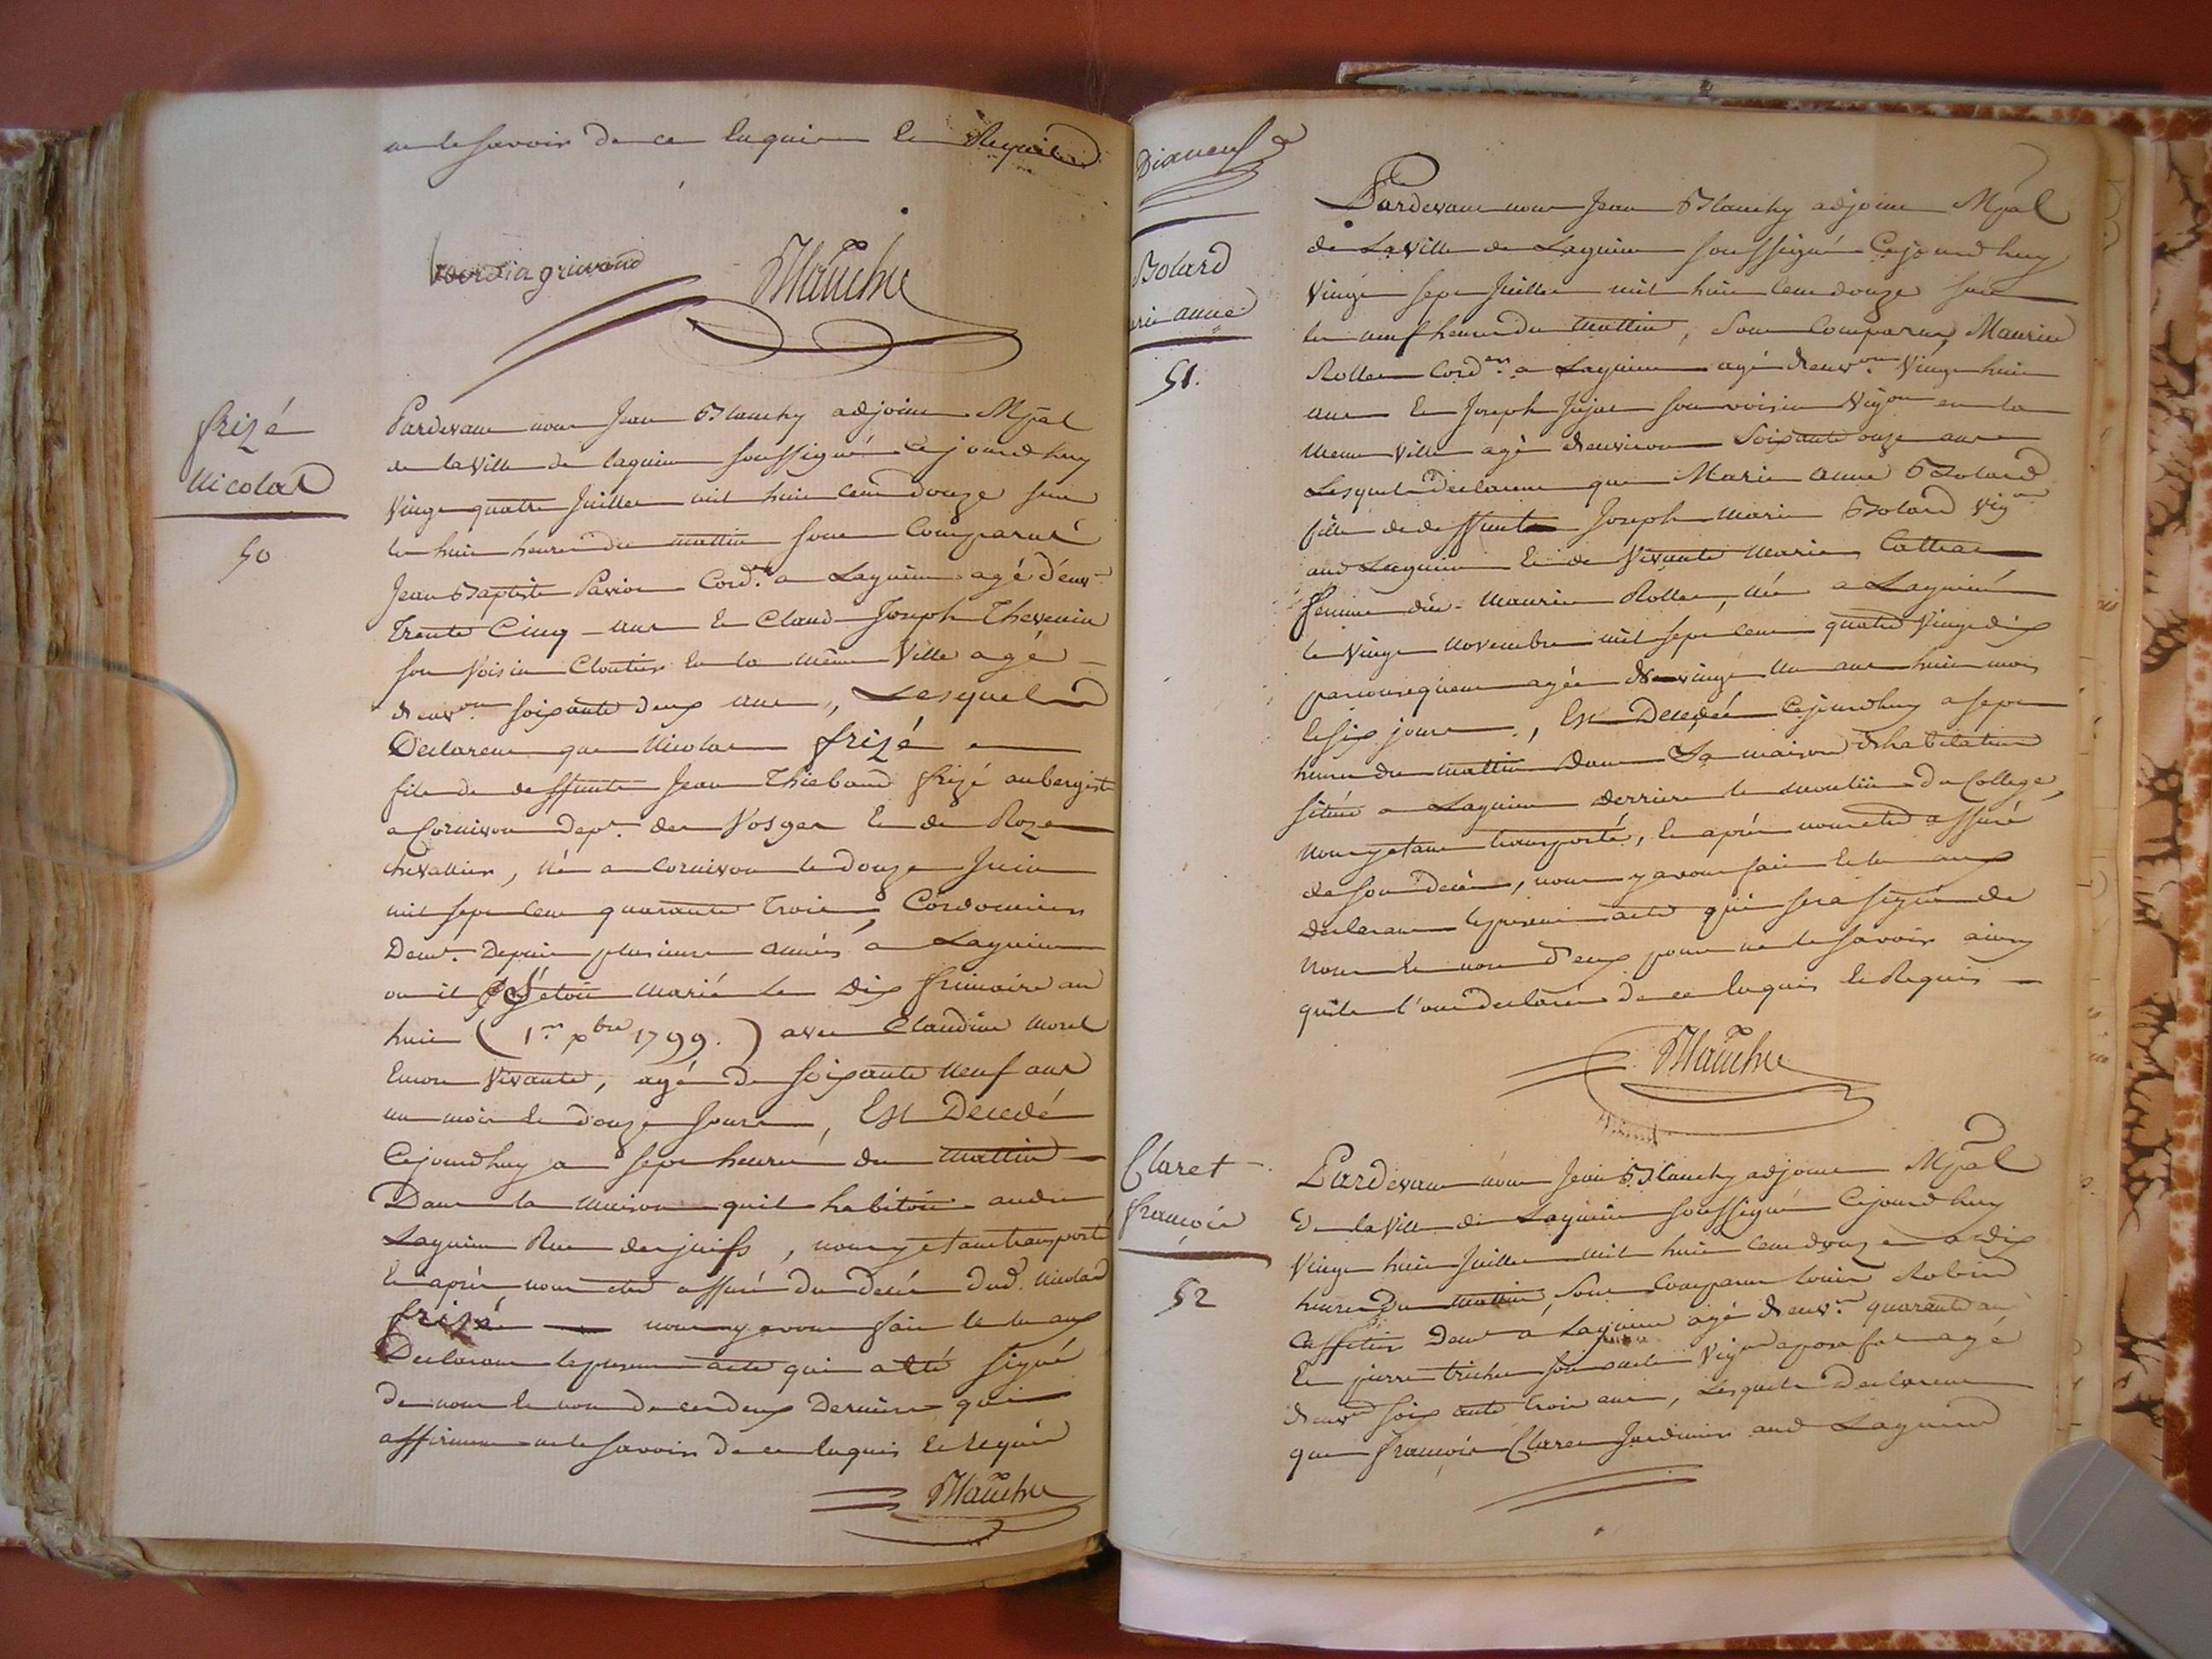 ne le savoir de ce Enquis et Requis
bourdin grivand
Blanche
frizé
Nicolas
50
Pardevant nous Jean Blanchy adjoint Mpal
de la Ville de lagnieu soussigné Cejourdhuy
Vingt quatre Juillet mil huit Cent douze sur
les huit heures du mattin sont Comparus
Jean Baptiste Cord.r a Lagnieu agé d'env.on
Trente Cinq ans Et Claud Joseph Thevenin
son Voisin Cloutier En la même Ville agé
d'env.on soixante deux ans, Lesquels
Declarent que Nicolas frizé
fils de deffunts Jean Thiebaud frizé aubergiste
a Cornimon Dep.t des Vosges Et de Roze
chevallier, Né a Cornimon le douze Juin
mil sept Cent quarante Trois, Cordonnier
Dem.t Depuis plusieurs années a Lagnieu
ou il s'etoit marié le Dix frimaire an
huit (1.er xbre 1799.) avec Claudine Morel
Encore Vivante, agé de soixante Neuf ans
un mois Et douze Jours, Est Decedé
Cejourdhuy a sept heures du mattin
Dans la maison quil habitoit aud.
Lagnieu Rue des juifs, nous y etant transporté
Et après nous etre assuré du Decès dud. Nicolas
frizé nous y avons fait Et lu aux
Declarants le present acte qui a été signé
de nous Et non de ces deux Derniers qui
affirment ne le savoir de ce Enquis Et requis
Blanche
Bolard
marie anne
51.
Pardevant nous Jean Blanchy adjoint Mpal
de La Ville de Lagnieu soussigné Cejourdhuy
Vingt sept Juillet mil huit Cent douze sur
les neuf heures du mattin, sont Comparus, Maurice
Rollet Cord.er a Lagnieu agé d'env.on Vingt huit
ans Et Joseph Jujat son voisin Vig.on en la
meme Ville agé d'environ Soixante onze ans
Lesquels Declarent que Marie Anne Bolard
fille de deffunt Joseph Marie Bolard Vig.on
aud Lagnieu Et de Vivante Marie
femme dud. Maurice Rollet, Née a Lagnieu
le Vingt Novembre mil sept Cent quatre Vingt dix
par consequent agée de vingt un ans huit mois
Et six jours, Est Decedée Cejourdhuy a sept
heures du mattin Dans Sa maison d'habitation
située a Lagnieu derriere le moulin du College,
Nous y etant transporté, Et après nous etre assuré
de son Decès, nous y avons fait Et lu aux
declarants le present acte qui sera signé de
Nous Et non d'eux pour ne le savoir ainsy
quils l'ont declaré de ce Enquis Et Requis
Blanche
Claret
françois
52
Pardevant nous Jean Blanchy adjoint Mpal
De la Ville de Lagnieu soussigné Cejourdhuy
Vingt huit Juillet mil huit Cent douze a dix
heures du mattin, sont Comparus Louis Robin
Caffetier Dem.t a Lagnieu agé d'env.on quarante ans
Et pierre Vig.on a agé
d'env.on soixante trois ans, Lesquels Declarent
que françois Claret Jardinier aud Lagnieu